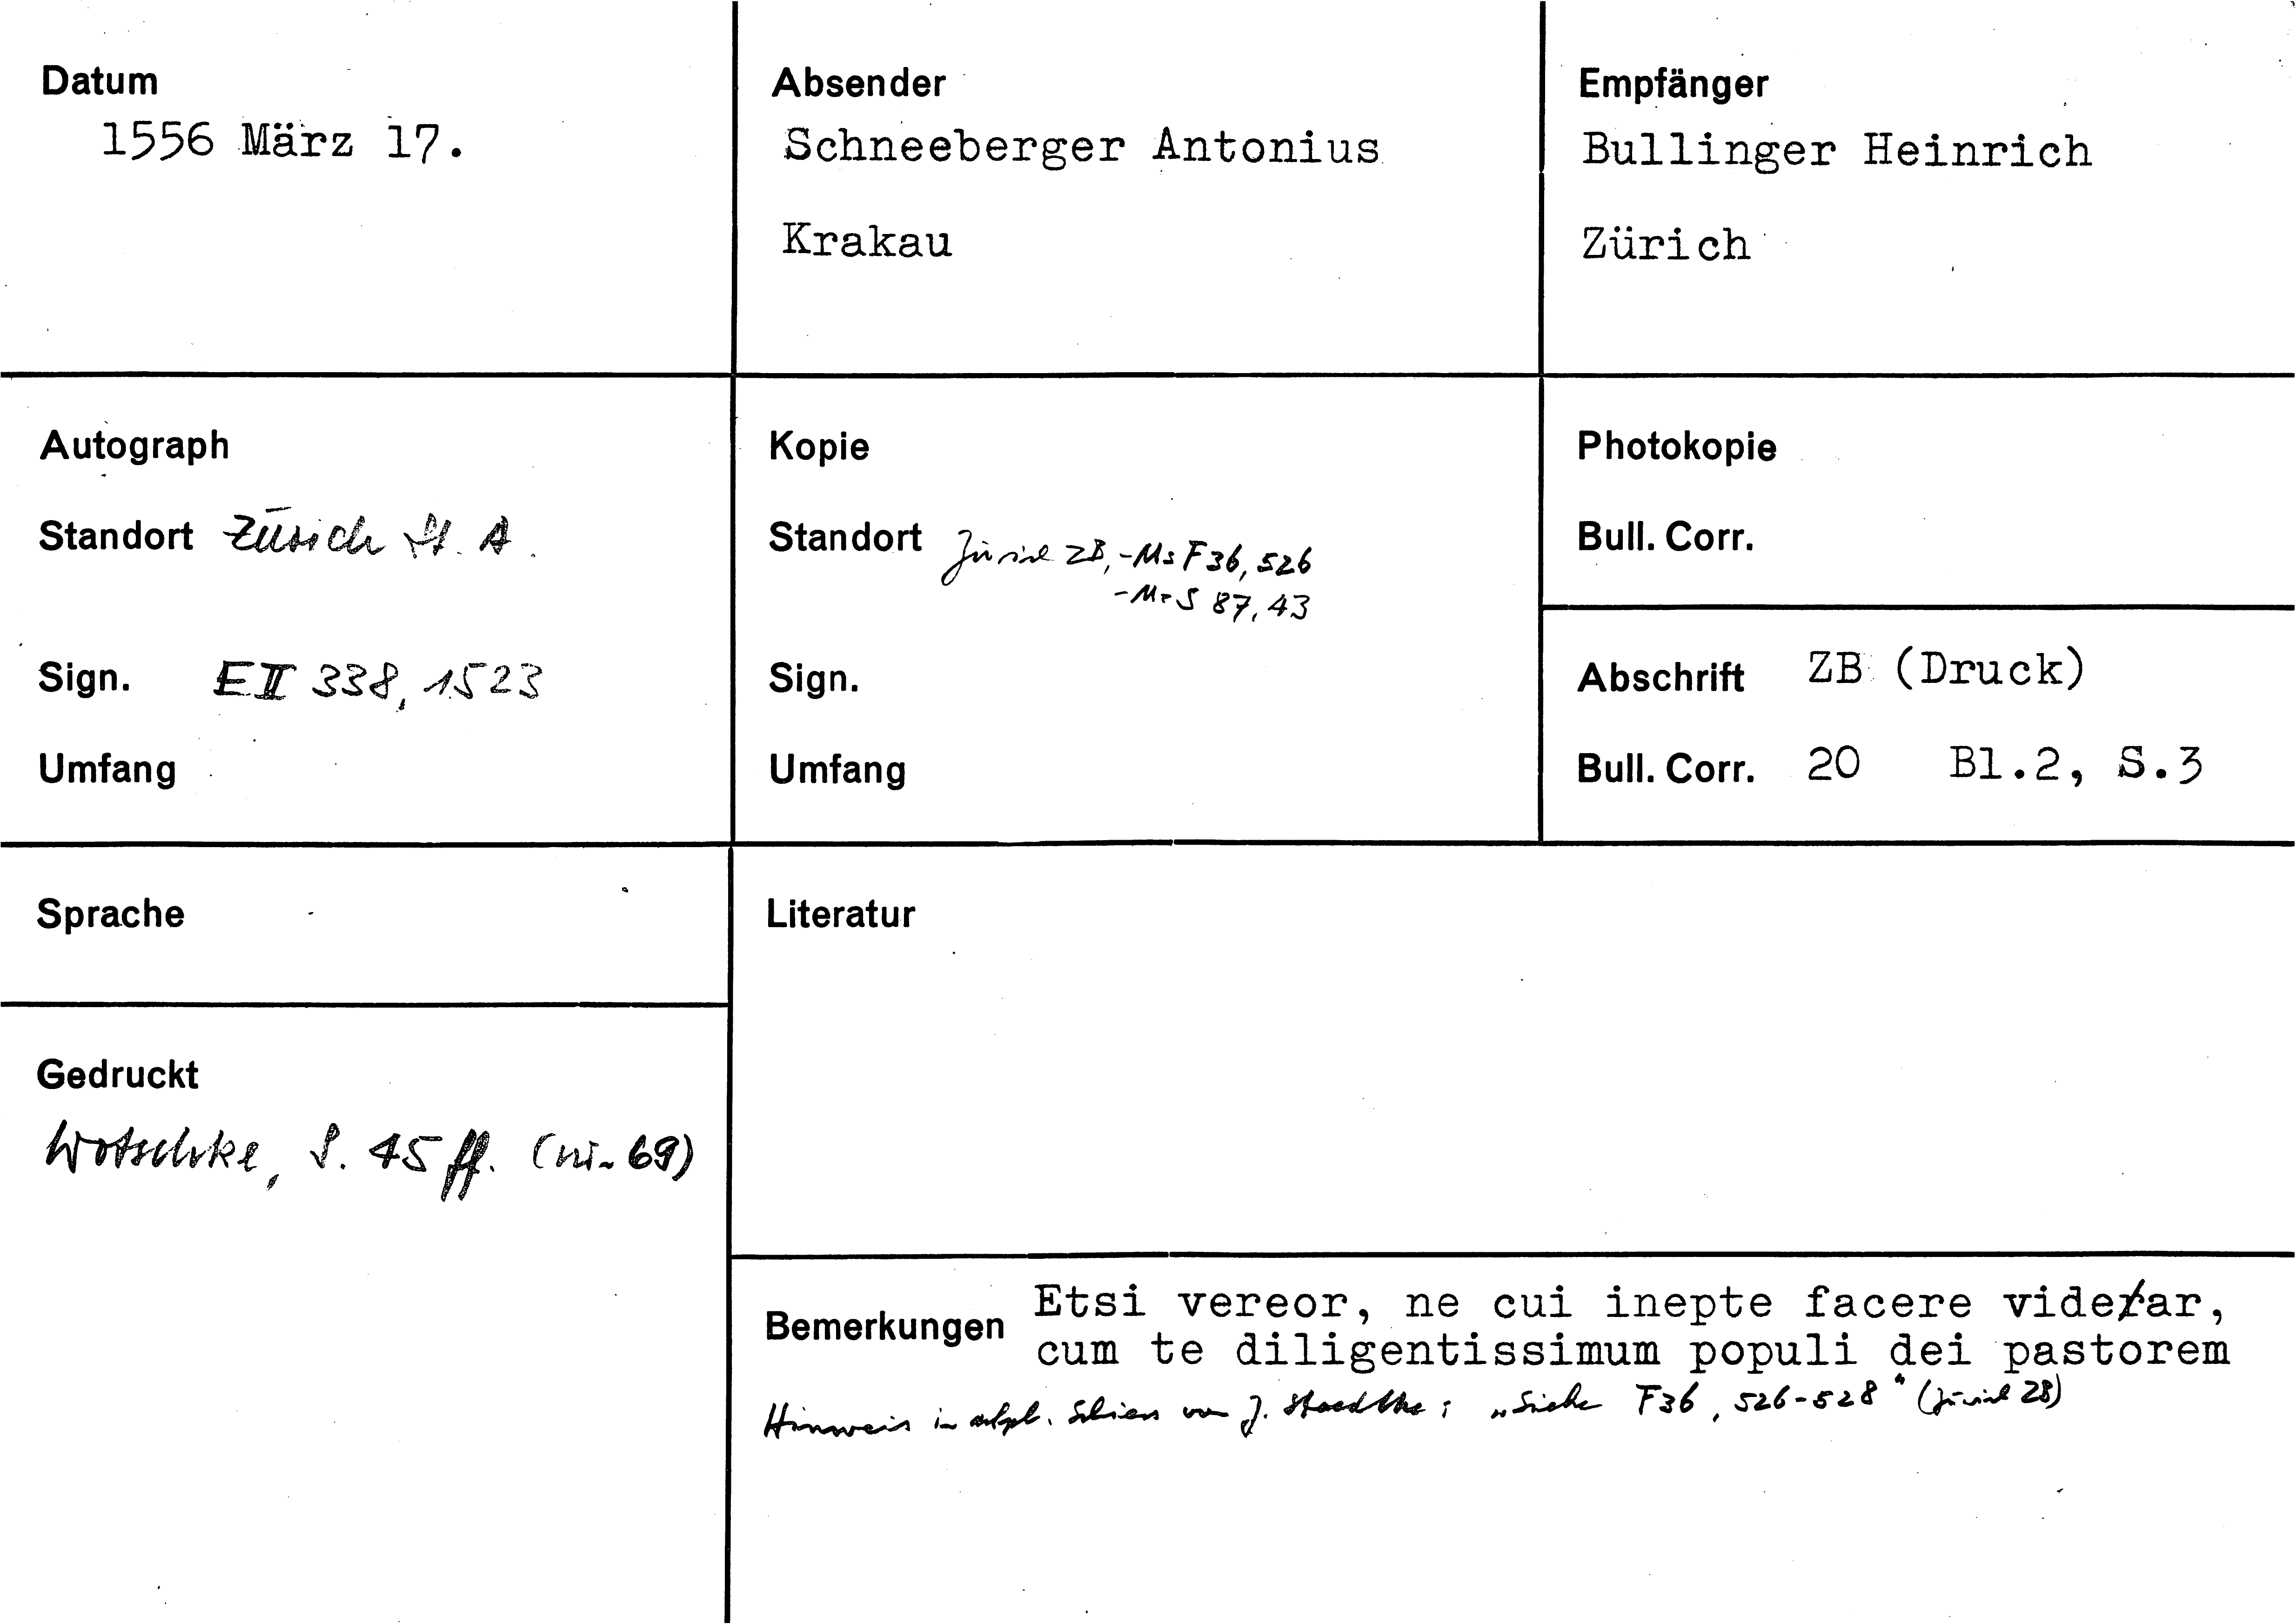 Datum
1556 März 17.
Absender
Schneeberger Antonius
Krakau
Empfänger
Bullinger Heinrich
Zürich
Autograph
Standort Zürich St. A.
Sign. E II 338, 1523
Umfang
Kopie
Standort Zürich ZB, - Ms F 36, 526
- Ms S 87, 43
Sign.
Umfang
Photokopie
Bull. Corr.
Abschrift ZB (Druck)
Bull. Corr. 20 Bl.2, S.3
Sprache
Gedruckt
Wotschke, S. 45 ff. (nr. 69)
Literatur
Bemerkungen Etsi vereor, ne cui inepte facere videar,
cum te diligentissimum populi dei pastorem
Hinweis in von J. Staedtke: „Siehe F36, 526-528" (Zürich ZB)